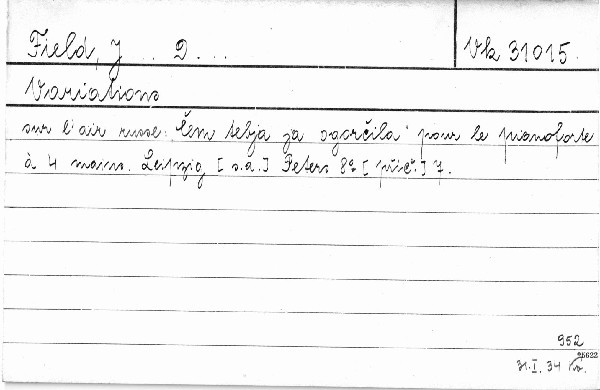 Field, J ... D. ...
Vk 31015.
Variations
sur l'air russe: Čem tebja ja ogorčila pour le pianoforte
à 4 mains. Leipzig [s.a.] Peters 8º [příč.] 7.
952
25622
31.I.34